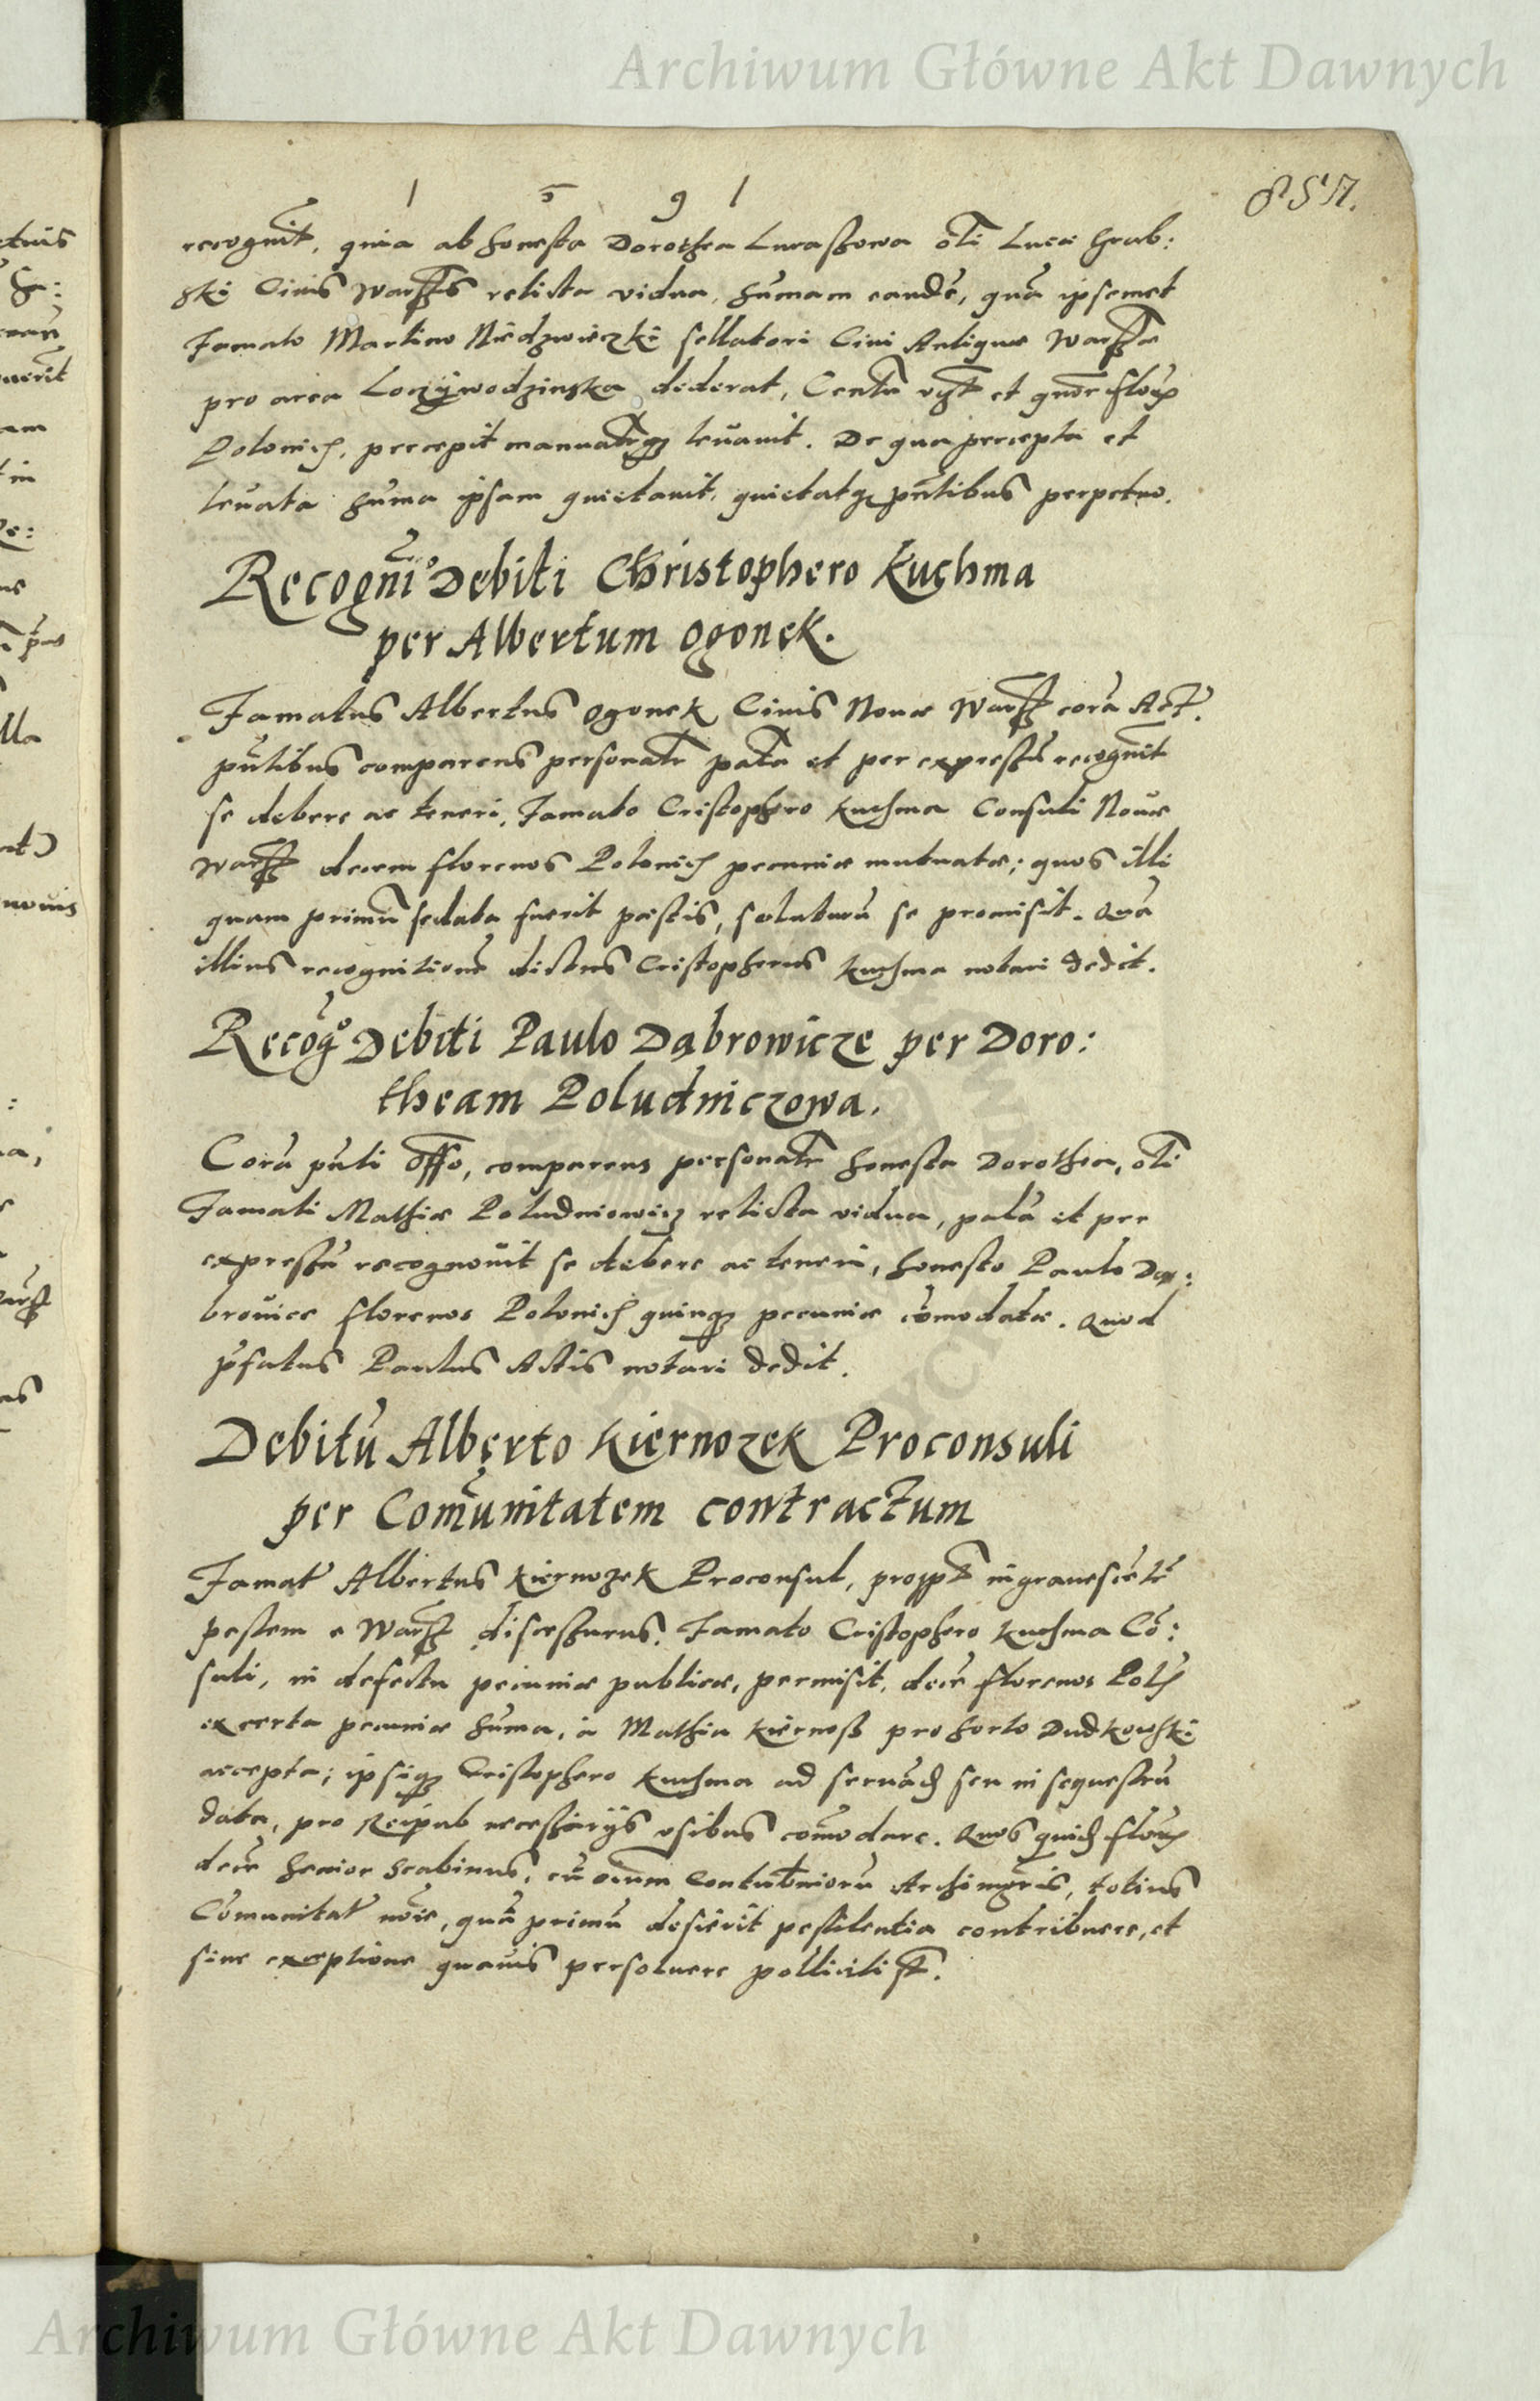 Archiwum Główne Akt Dawnych
1 5 9 1
857.
recognit, quia ab honesta Dorothea Lucaszowa oli Lucæ Grab:
ski Civis Warss relicta vidua, summam eandē, quā ipsemet
Famato Martino Niedzwieczki sellatori Civi Antiquæ Warss
pro area Loczijwodzinska dederat, Centū vgt et quor floɍ
Polonich, percepit manuatrqz levavit. De qua percepta et
levata summa ipsam quietavit, quietatqz pntibus perpetuo.
Recogni° Debiti Christophero Kuchma
per Albertum Ogonek.
Famatus Albertus Ogonek Civis Novæ Warss corā Act.
pntibus comparens personatr palā et per expressū recognit
se debere ac teneri, Famato Cristophero Kuchma Consuli Novæ
Warss decem florenos Polonich pecuniæ mutuatæ; quos illi
quam primū sedata fuerit pæstis, soluturū se promisit. Quā
illius recognitionē dictus Cristopherus Kuchma notari dedit.
Recog° Debiti Paulo Dąbrowicze per Doro:
theam Poludniczowa.
Corā pnti offo, comparens personatr honesta Dorothea, oli
Famati Mathiæ Poludniowicz relicta vidua, palā et per
expressū recognovit se debere ac teneri, honesto Paulo Dą:
browicz florenos Polonich quinqz pecuniæ cōmodatæ. Quod
pfatus Paulus Actis notari dedit.
Debitū Alberto Kiernozek Proconsuli
per Comūnitatem contractum
Famat Albertus Kiernozek Proconsul, proppt ingravescētē
pestem e Warss discessurus, Famato Cristophero Kuchma Cō:
suli, in defectu pecuniæ publicæ, permisit, decē florenos Polh
ex certa pecuniæ summa, à Mathia Kiernoss pro horto Dudkowski
accepta; ipsiqz Cristophero Kuchma ad servādh seu in sequestrū
data, pro Reipub necessarijs usibus cōmodare. Quos quidh floɍ
decē senior Scabinus, cū oium Contubrniorū Archimgris, totius
Cōmunitat noīe, quā primū desierit pestilentia contribuere, et
sine exceptione quavis persolvere polliciti st.
Archiwum Główne Akt Dawnych